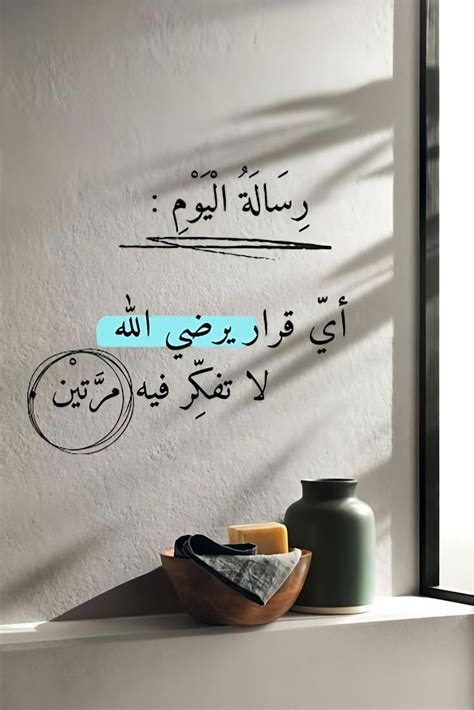 رِسَالَةُ الْيَوْمِ :
أيّ قرار يرضي الله
لا تفكِّر فيه مرَّتيْن